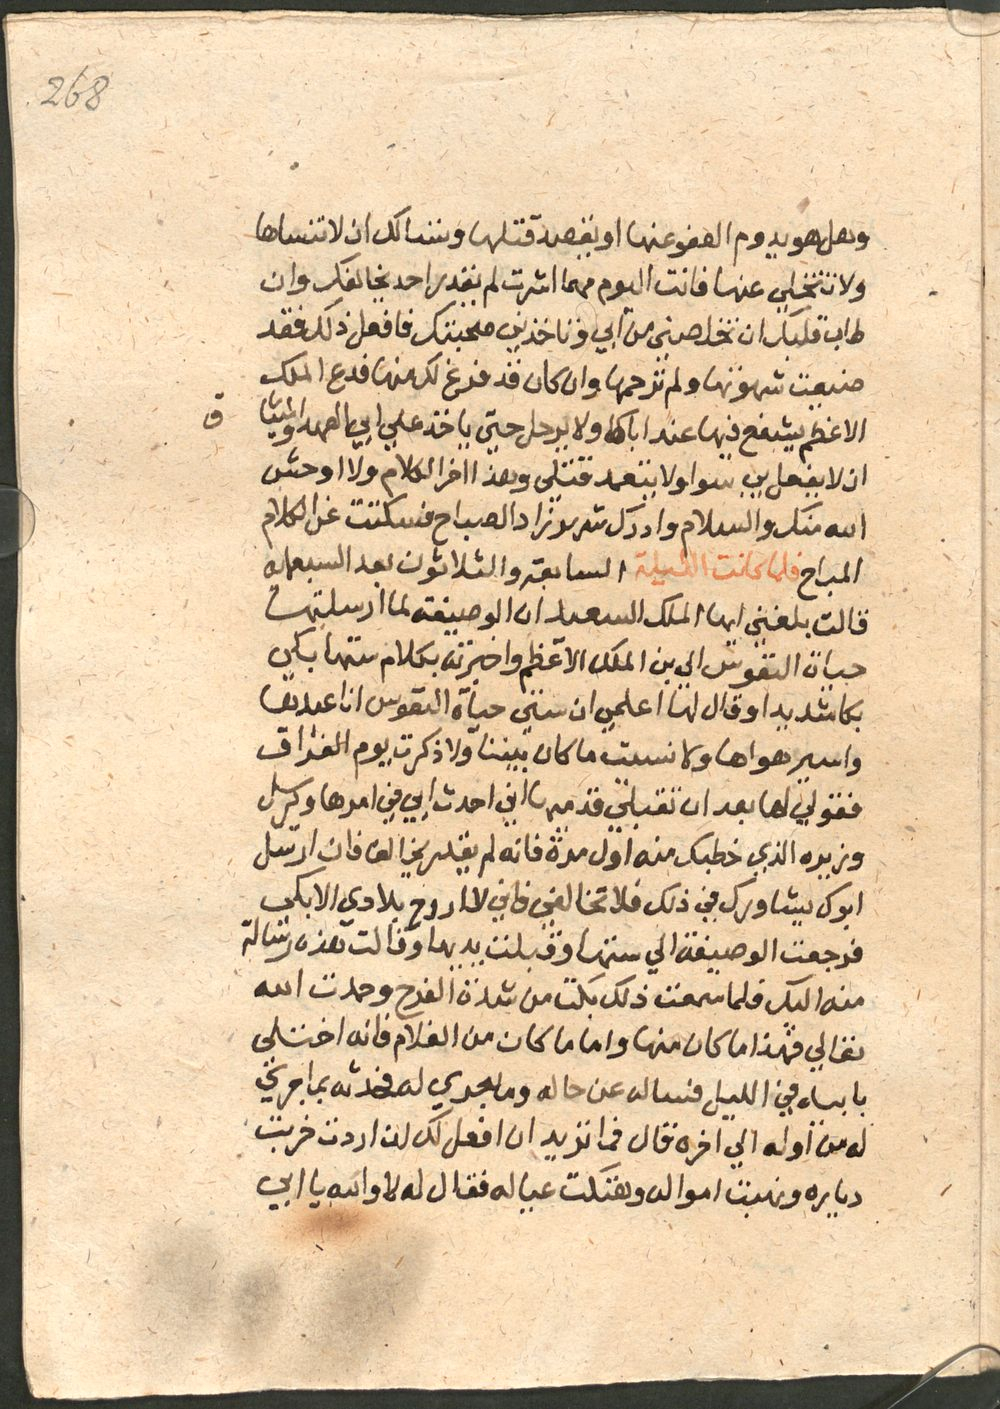 268
وهل هو يدوم العفو عنها او يقصد قتلها وتسالك ان لا تنساها
ولا تتخلي عنها فانت اليوم مهما اشرت لم يقدر احد يخالفك وان
طاب قلبك ان تخلصني من ابي وتاخذني صحبتك فافعل ذلك فقد
ضيعت شهوتها ولم ترحمها وان كان قد فرغ لك منها فدع الملك
الاعظم يشفع فيها عند اباها ولا يرحل حتي ياخذ علي ابي العهد والميثا
ق
ان لا يفعل بي سوا ولا يتعمد قتلي وهذا اخر الكلام ولا اوحش
الله منك والسلام وادرك شهرزاد الصباح فسكتت عن الكلام
المباح فلما كانت الليلة السابعة والثلاثون بعد السبعمايه
قالت بلغني ايها الملك السعيد ان الوصيفة لما ارسلتها
حياة النفوس الي بن الملك الاعظم واخبرته بكلام ستها بكي
بكا شديدا وقال لها اعلمي ان ستي حياة النفوس انا عبدها
واسير هواها ولا نسيت ما كان بيننا ولا ذكرت يوم الفراق
فقولي لها بعد ان تقبلي قدميها اني احدث ابي في امرها ويرسل
وزيره الذي خطبك منه اول مرة فانه لم يقدر يخالف فان ارسل
ابوك يشاورك في ذلك فلا تخالفي فاني لا اروح بلادي الا بكي
فرجعت الوصيفة الي ستها وقبلت يديها وقالت هذه رسالة
منه اليك فلما سمعت ذلك بكت من شدة الفرح وحمدت الله
تعالي فهذا ما كان منها واما ما كان من الغلام فانه اختلي
بابيه في الليل فساله عن حاله وما يجري له فحدثه بما جري
له من اوله الي اخره قال فما تريد ان افعل لك لان اردت خربت
دياره ونهبت امواله وهتكت عياله فقال له لا والله يا ابي